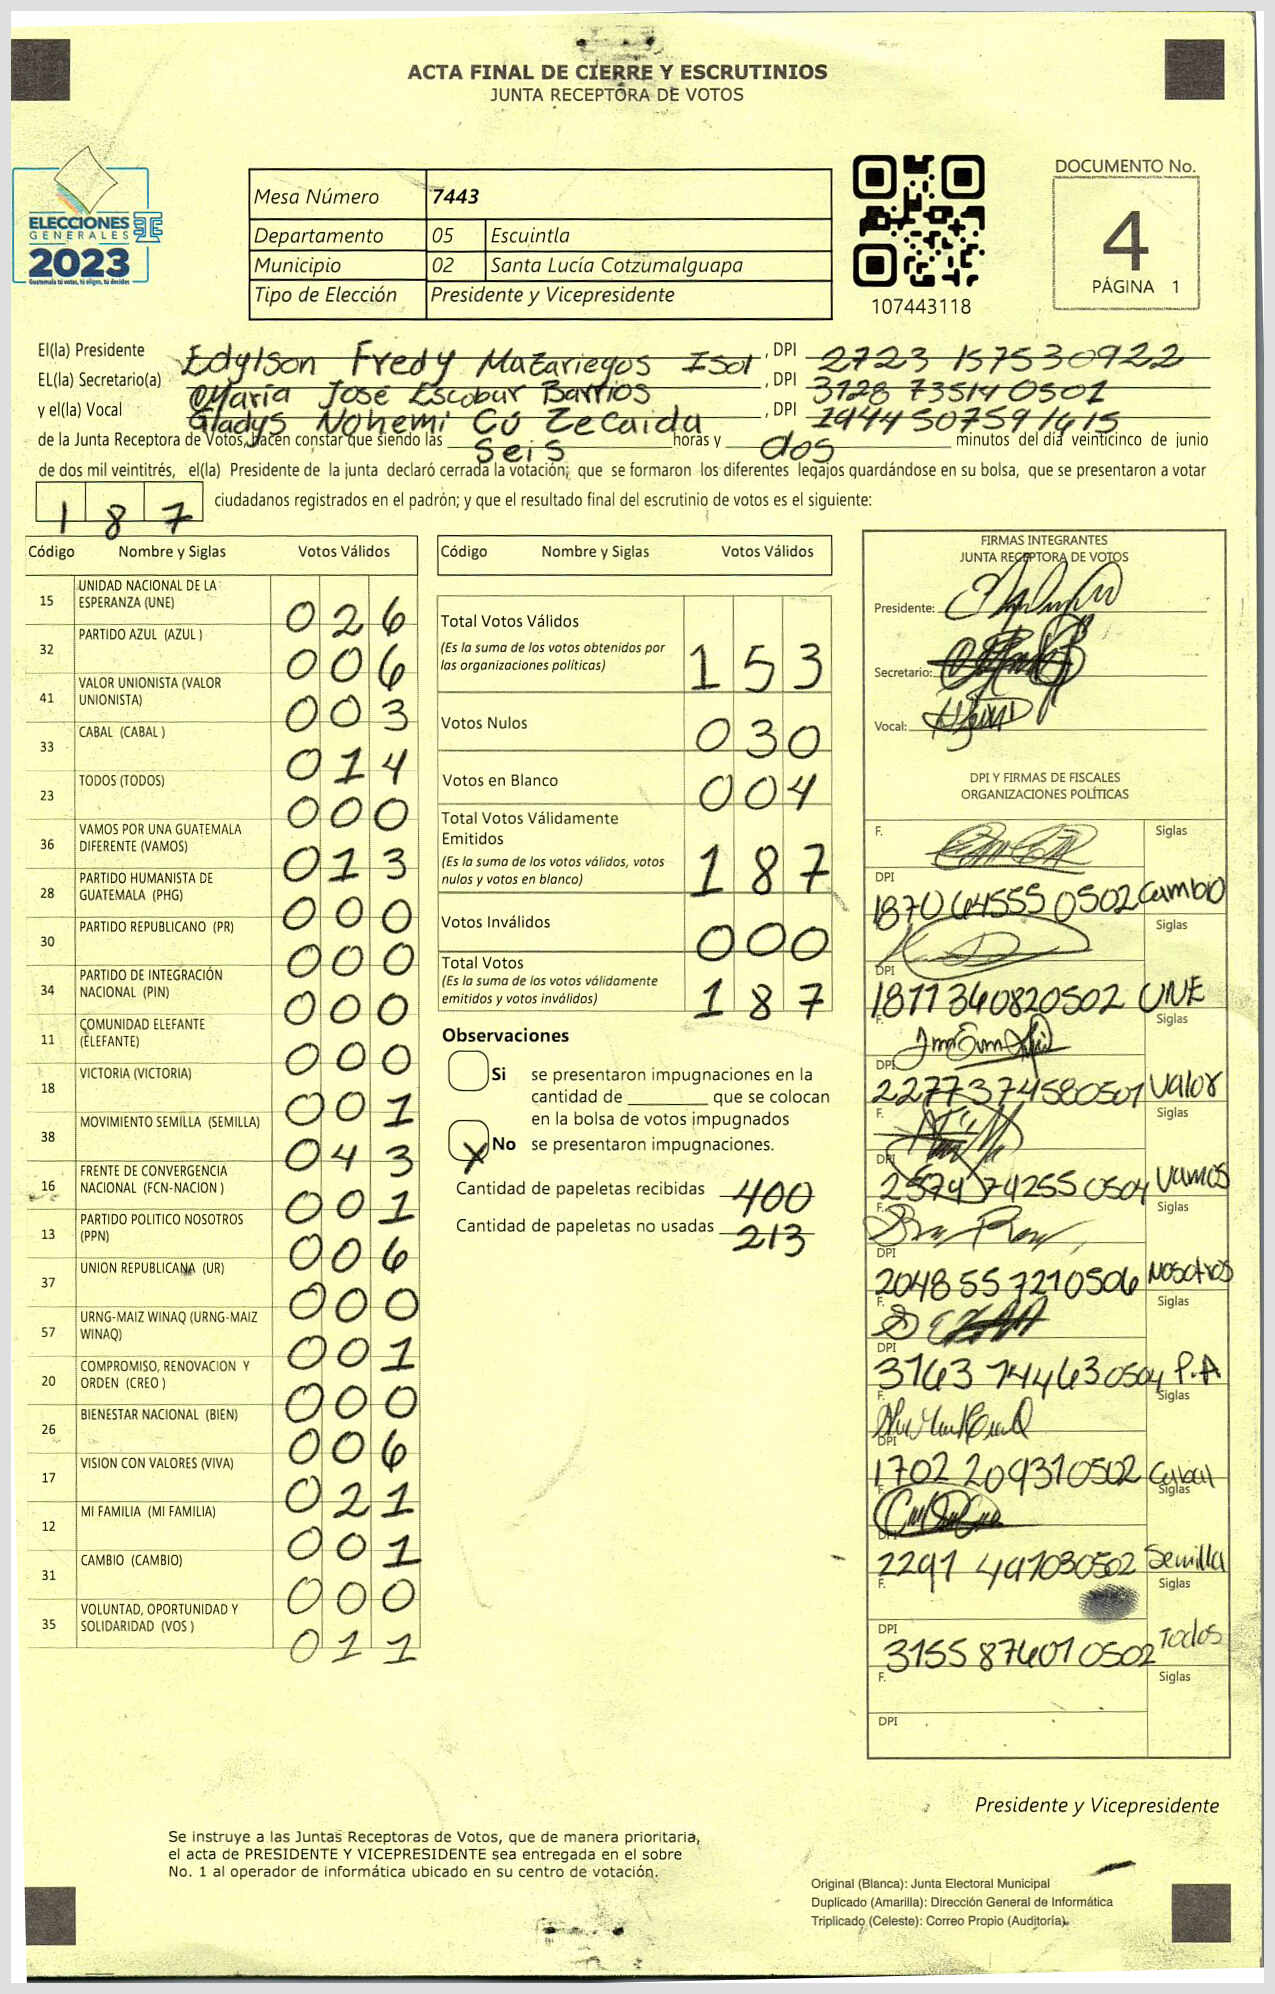 ACTA FINAL DE CIERRE Y ESCRUTINIOS
JUNTA RECEPTORA DE VOTOS
ELECCIONES
GENERALES
2023
Guatemala tú votas, tú eliges, tú decides
Mesa Número 7443
Departamento 05 Escuintla
Municipio 02 Santa Lucía Cotzumalguapa
Tipo de Elección Presidente y Vicepresidente
107443118
DOCUMENTO No.
4
PÁGINA 1
El(la) Presidente Edylson Fredy Mazariegos Isol, DPI 2723 157530922
EL(la) Secretario(a) María José Escobar Barrios, DPI 3128 73514 0501
y el(la) Vocal Gladys Nohemi Cú Zecaida, DPI 1944507591415
de la Junta Receptora de Votos, hacen constar que siendo las seis horas y dos minutos del día veinticinco de junio
de dos mil veintitrés, el(la) Presidente de la junta declaró cerrada la votación; que se formaron los diferentes legajos guardándose en su bolsa, que se presentaron a votar
187 ciudadanos registrados en el padrón; y que el resultado final del escrutinio de votos es el siguiente:
Código Nombre y Siglas Votos Válidos
15 UNIDAD NACIONAL DE LA ESPERANZA (UNE) 026
32 PARTIDO AZUL (AZUL ) 006
41 VALOR UNIONISTA (VALOR UNIONISTA) 003
33 CABAL (CABAL ) 014
23 TODOS (TODOS) 000
36 VAMOS POR UNA GUATEMALA DIFERENTE (VAMOS) 013
28 PARTIDO HUMANISTA DE GUATEMALA (PHG) 000
30 PARTIDO REPUBLICANO (PR) 000
34 PARTIDO DE INTEGRACIÓN NACIONAL (PIN) 000
11 COMUNIDAD ELEFANTE (ELEFANTE) 000
18 VICTORIA (VICTORIA) 001
38 MOVIMIENTO SEMILLA (SEMILLA) 043
16 FRENTE DE CONVERGENCIA NACIONAL (FCN-NACION ) 001
13 PARTIDO POLITICO NOSOTROS (PPN) 006
37 UNION REPUBLICANA (UR) 000
57 URNG-MAIZ WINAQ (URNG-MAIZ WINAQ) 001
20 COMPROMISO, RENOVACION Y ORDEN (CREO ) 000
26 BIENESTAR NACIONAL (BIEN) 006
17 VISION CON VALORES (VIVA) 021
12 MI FAMILIA (MI FAMILIA) 001
31 CAMBIO (CAMBIO) 000
35 VOLUNTAD, OPORTUNIDAD Y SOLIDARIDAD (VOS ) 011
Código Nombre y Siglas Votos Válidos
Total Votos Válidos 153
(Es la suma de los votos obtenidos por
las organizaciones políticas)
Votos Nulos 030
Votos en Blanco 004
Total Votos Válidamente
Emitidos 187
(Es la suma de los votos válidos, votos
nulos y votos en blanco)
Votos Inválidos 000
Total Votos 187
(Es la suma de los votos válidamente
emitidos y votos inválidos)
Observaciones
Si se presentaron impugnaciones en la
cantidad de ________ que se colocan
en la bolsa de votos impugnados
X No se presentaron impugnaciones.
Cantidad de papeletas recibidas 400
Cantidad de papeletas no usadas 213
FIRMAS INTEGRANTES
JUNTA RECEPTORA DE VOTOS
Presidente:
Secretario:
Vocal:
DPI Y FIRMAS DE FISCALES
ORGANIZACIONES POLÍTICAS
F. Siglas
DPI 1870 64555 0502 Cambio
Siglas
DPI 1811340820502 UNE
F. Siglas
DPI 2277374580501 Valor
F. Siglas
DPI 2579 74255 0504 Vamos
F. Siglas
DPI 2048 55 7210506 Nosotros
F. Siglas
DPI 3163 74463 0504 P.A
F. Siglas
DPI 1702 209310502 Cabal
F. Siglas
DPI 2291 491030502 Semilla
F. Siglas
DPI 3155 87401 0502 Todos
F. Siglas
DPI
Presidente y Vicepresidente
Se instruye a las Juntas Receptoras de Votos, que de manera prioritaria,
el acta de PRESIDENTE Y VICEPRESIDENTE sea entregada en el sobre
No. 1 al operador de informática ubicado en su centro de votación.
Original (Blanca): Junta Electoral Municipal
Duplicado (Amarilla): Dirección General de Informática
Triplicado (Celeste): Correo Propio (Auditoría).